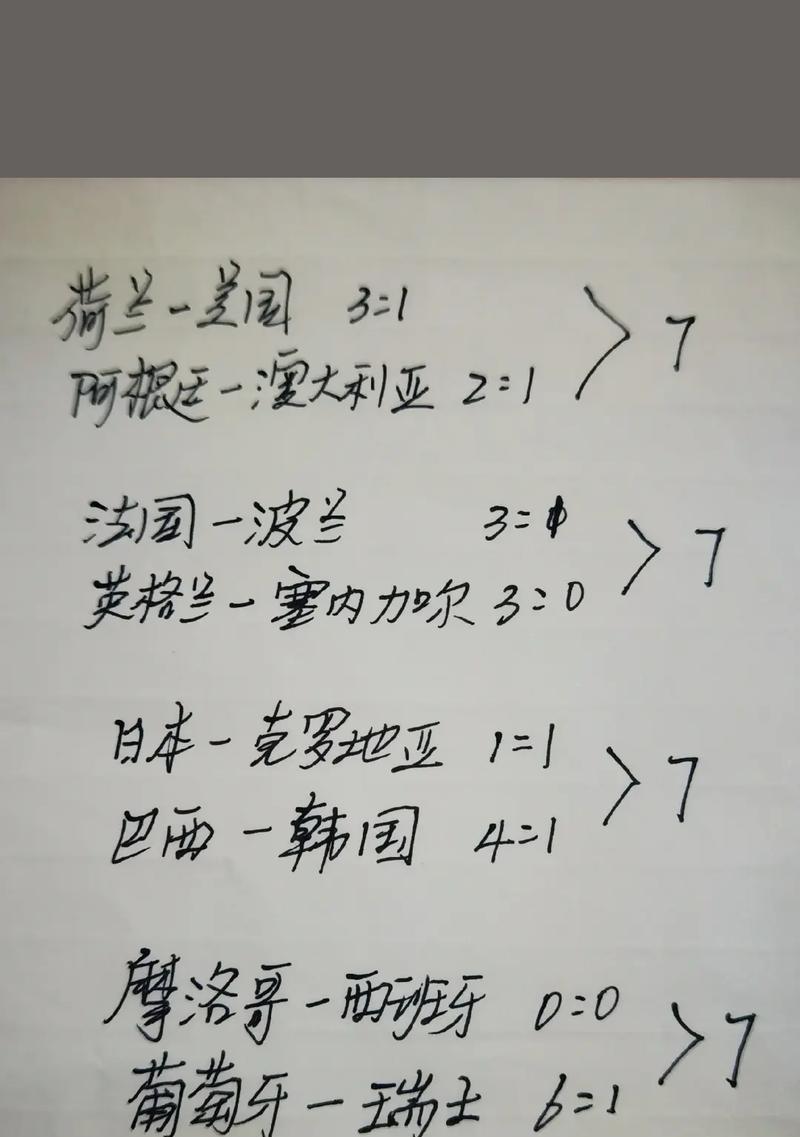 荷兰-美国 3=1
> 7
阿根廷-澳大利亚 2=1
法国-波兰 3=1
> 7
英格兰-塞内加尔 3=0
日本-克罗地亚 1=1
> 7
巴西-韩国 4=1
摩洛哥-西班牙 0=0
> 7
葡萄牙-瑞士 6=1